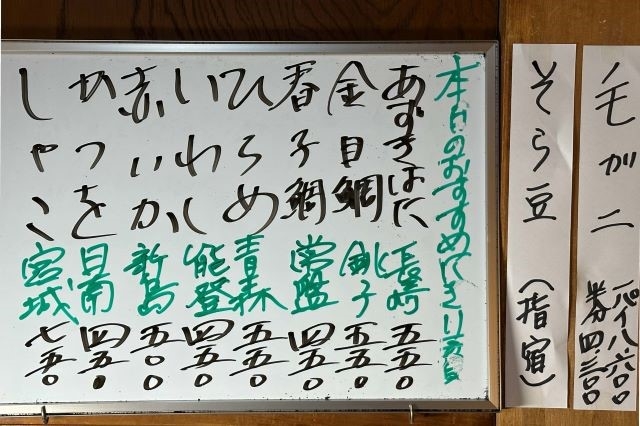 毛ガニ 一パイ八.六〇〇
半分四.三〇〇
そら豆 （指宿）
本日のおすすめにぎり
あずきはた 長崎 五五〇
金目鯛 銚子 五五〇
春子鯛 常磐 四五〇
ひらめ 青森 五五〇
いわし 能登 四五〇
赤いか 新島 五〇〇
かつを 日南 四五〇
しゃこ 宮城 七五〇